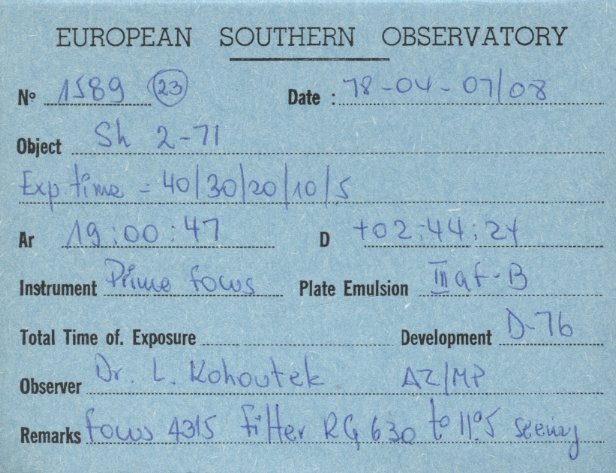 EUROPEAN SOUTHERN OBSERVATORY
Nº 1589 (23) Date : 78-04-07/08
Object Sh 2-71
Exp time = 40/30/20/10/5
Ar 19:00:47 D +02:44:24
Instrument Prime focus Plate Emulsion IIIaF-B
Total Time of. Exposure Development D-76
Observer Dr. L. Kohoutek AZ/MP
Remarks focus 4315 Filter RG 630 tº 11º5 seeing